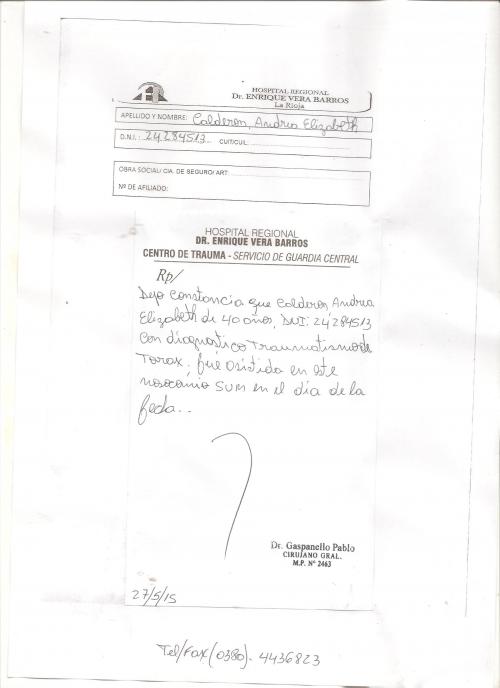 HOSPITAL REGIONAL
Dr. ENRIQUE VERA BARROS
La Rioja
APELLIDO Y NOMBRE: Calderon, Andrea Elizabeth
D.N.I.: 24284513 CUIT/CUIL:
OBRA SOCIAL/ CIA. DE SEGURO/ ART:
Nº DE AFILIADO:
HOSPITAL REGIONAL
DR. ENRIQUE VERA BARROS
CENTRO DE TRAUMA - SERVICIO DE GUARDIA CENTRAL
Rp/
Dejo constancia que Calderon, Andrea
Elizabeth de 40 años, DNI: 24284513
con diagnostico Traumatismo de
Torax; fue asistida en este
nosocomio SUM en el día de la
fecha..
Dr. Gaspanello Pablo
CIRUJANO GRAL.
M.P. Nº 2463
27/5/15
Tel/Fax (0380). 4436823